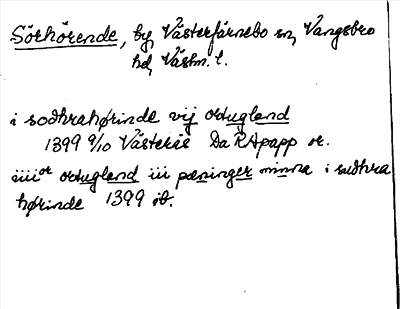 Sörhörende, by, Västerfärnebo sn, Vangsbro
hd, Västm. l.
i sodhrahørinde vij ortugland
1399 9/10 Västerås Da RApapp or.
iiiior ortugland iii pæninger minna i sudhra
hørinde 1399 ib.